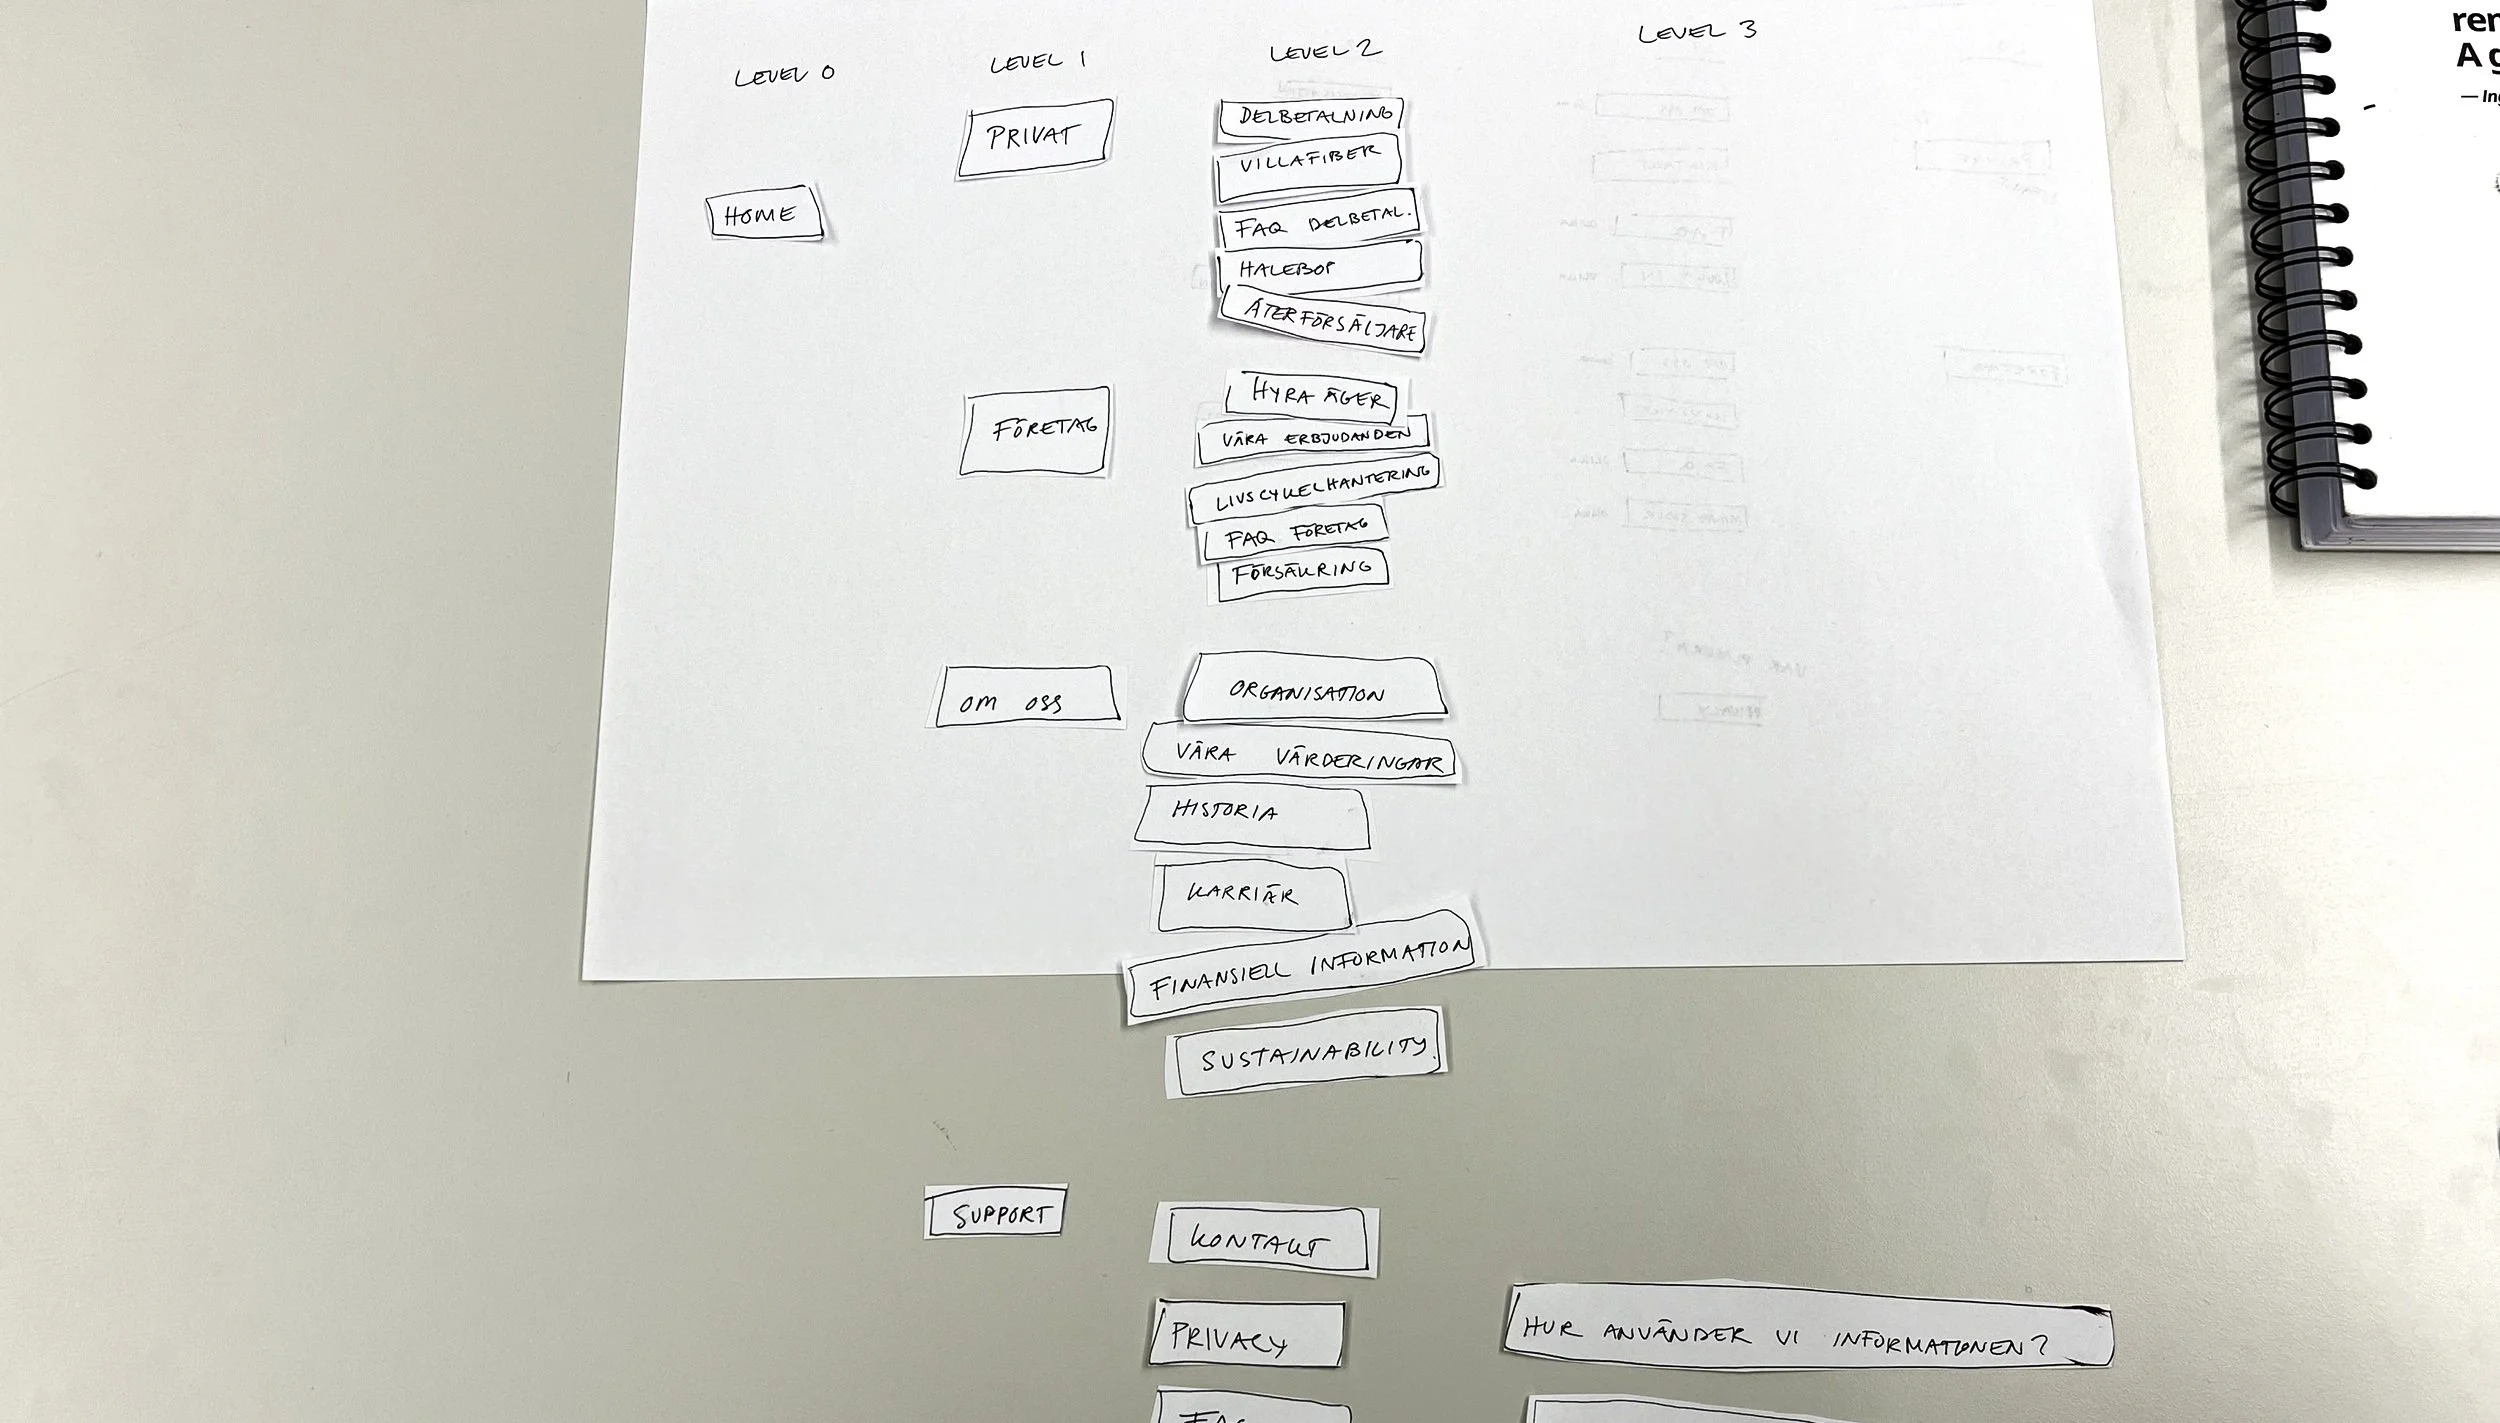 LEVEL 0
LEVEL 1
LEVEL 2
LEVEL 3
HOME
PRIVAT
DELBETALNING
VILLAFIBER
FAQ DELBETAL.
HALEBOP
ÅTERFÖRSÄLJARE
FÖRETAG
HYRA ÄGER
VÅRA ERBJUDANDEN
LIVSCYKELHANTERING
FAQ FÖRETAG
FÖRSÄKRING
OM OSS
ORGANISATION
VÅRA VÄRDERINGAR
HISTORIA
KARRIÄR
FINANSIELL INFORMATION
SUSTAINABILITY
SUPPORT
KONTAKT
PRIVACY
HUR ANVÄNDER VI INFORMATIONEN?
A